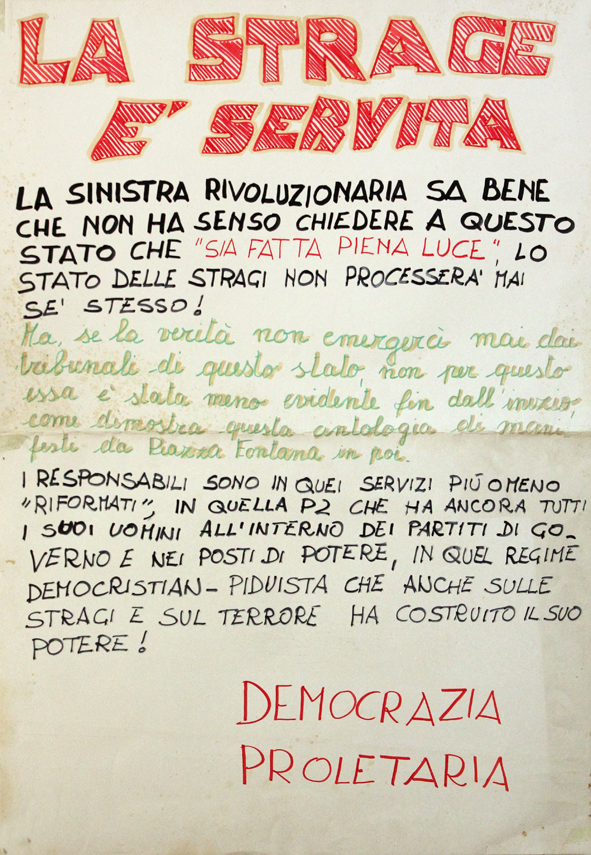 LA STRAGE
E' SERVITA
LA SINISTRA RIVOLUZIONARIA SA BENE
CHE NON HA SENSO CHIEDERE A QUESTO
STATO CHE "SIA FATTA PIENA LUCE", LO
STATO DELLE STRAGI NON PROCESSERA' MAI
SE' STESSO!
Ma, se la verità non emergerà mai dai
tribunali di questo stato, non per questo
essa è stata meno evidente fin dall'inizio,
come dimostra questa antologia di mani
festi da Piazza Fontana in poi.
I RESPONSABILI SONO IN QUEI SERVIZI PIÚ O MENO
"RIFORMATI", IN QUELLA P2 CHE HA ANCORA TUTTI
I SUOI UOMINI ALL'INTERNO DEI PARTITI DI GO-
VERNO E NEI POSTI DI POTERE, IN QUEL REGIME
DEMOCRISTIAN-PIDUISTA CHE ANCHE SULLE
STRAGI E SUL TERRORE HA COSTRUITO IL SUO
POTERE!
DEMOCRAZIA
PROLETARIA